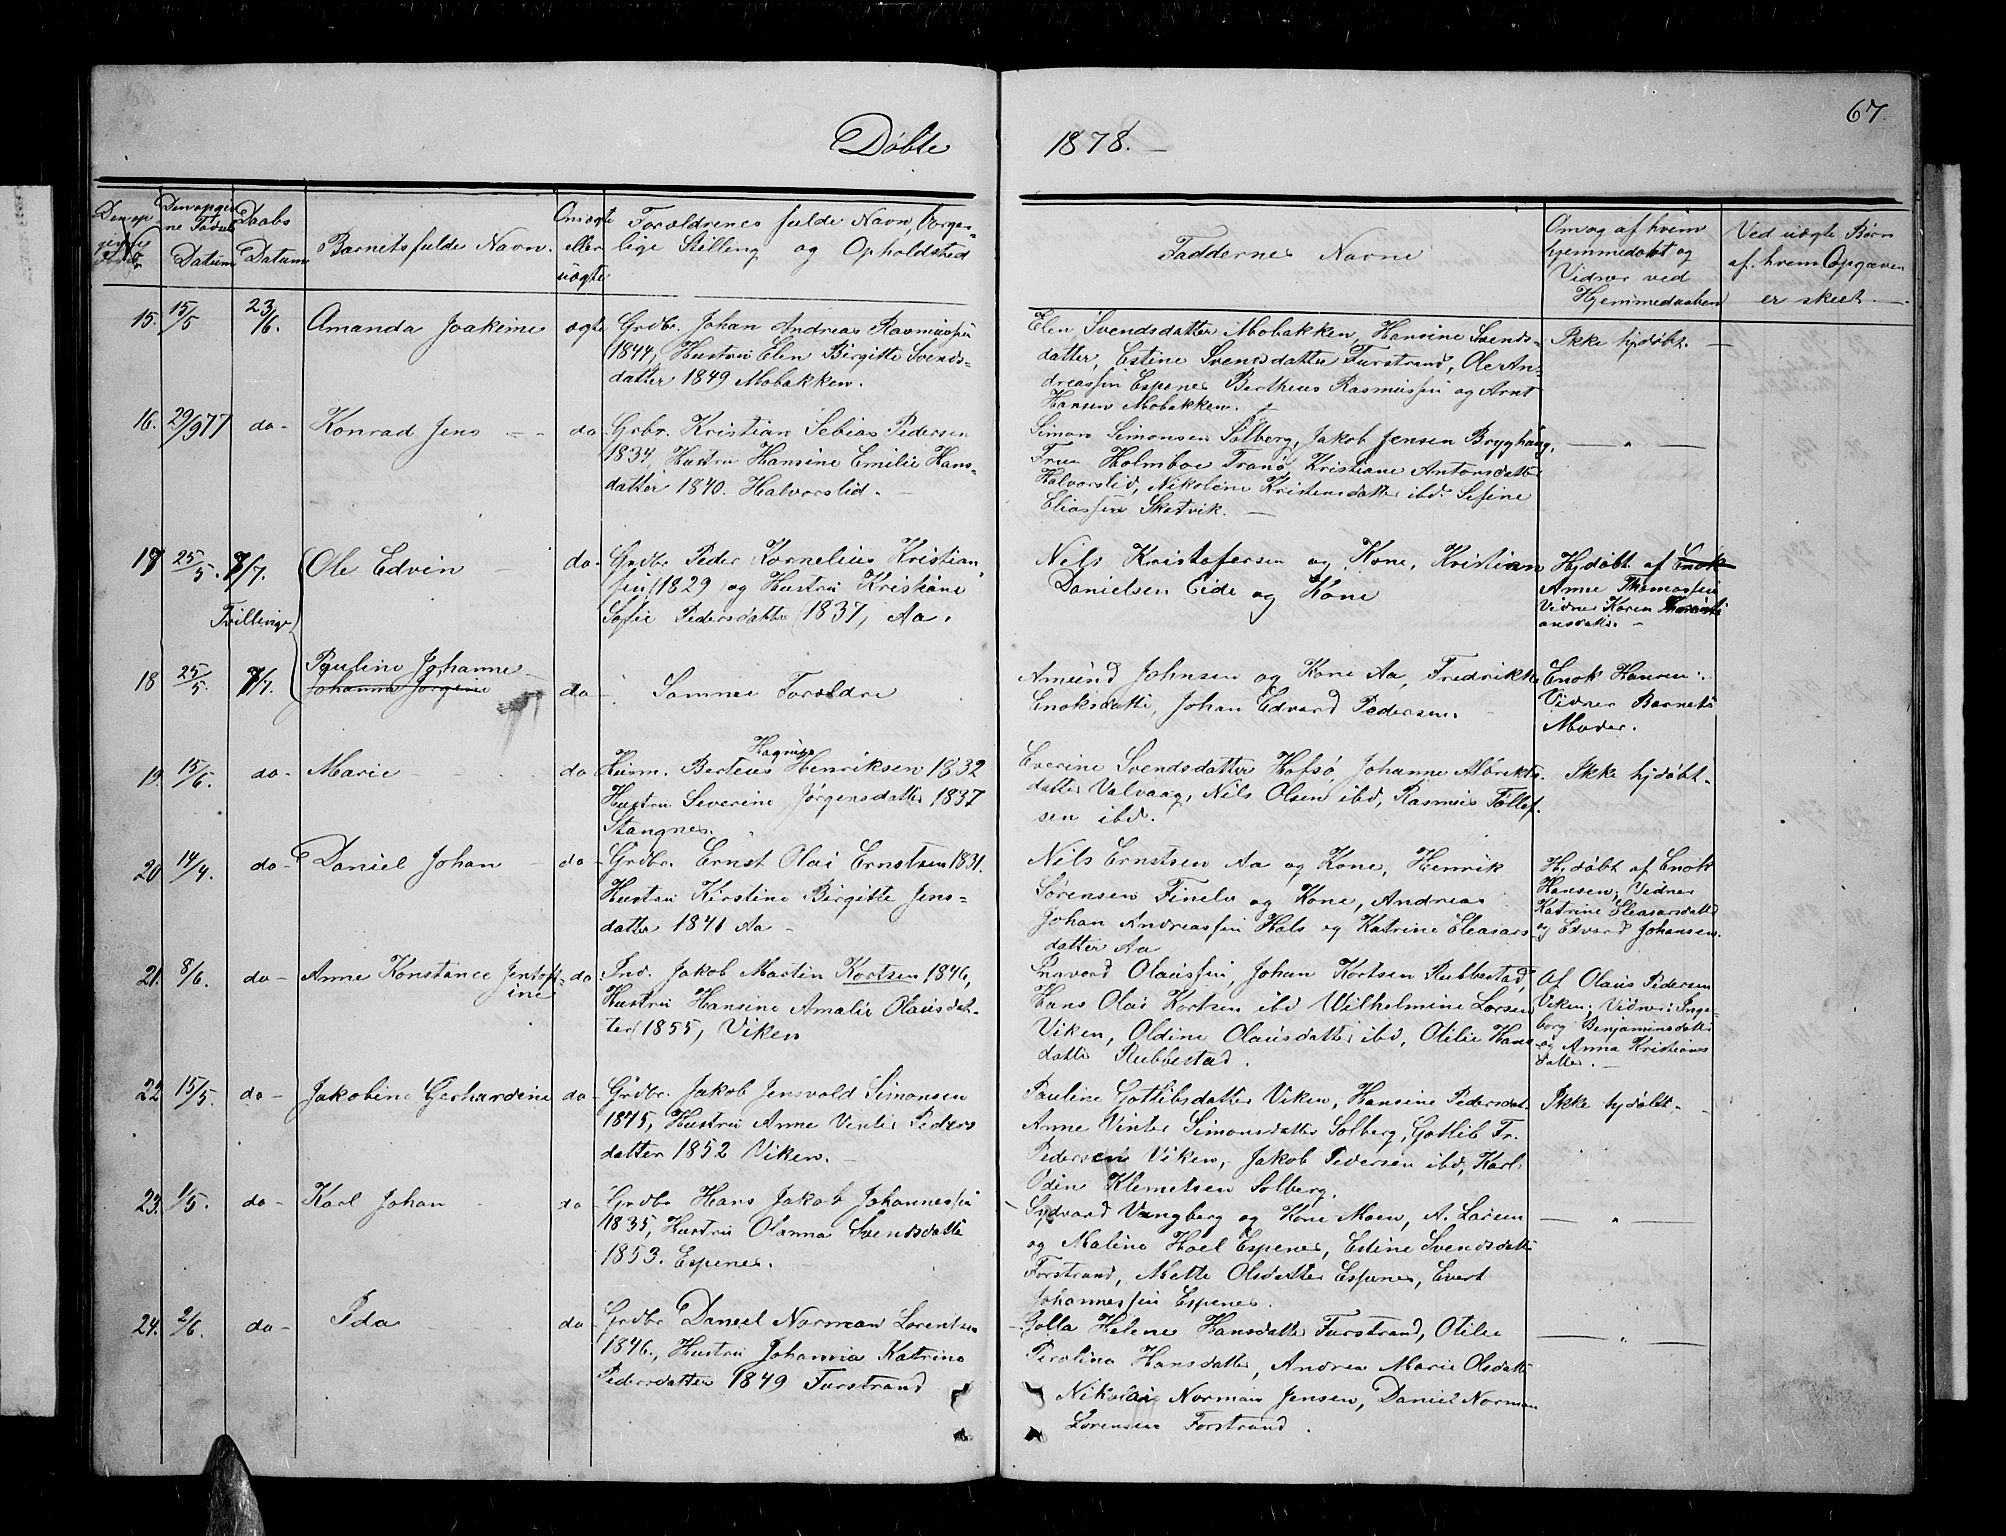 67.
Døbte
1878.
Barnets fulde Navn.
Forældrenes fulde Navn, borger-
lige Stilling og Opholdsted
Faddernes Navne
Om og af hvem
hjemmedøbt og
Vidner ved
Hjemmedaaben
Ved uægte Børn
af hvem Opgaven
er skeet.
15. 15/5 23/6. Amanda Joakime ægte Grdbr. Johan Andreas Rasmussen
1844, Hustru Elen Birgitte Svends-
datter 1849 Mobakken.
Elen Svendsdatter Mobakken, Hansine Svends-
datter, Estine Svendsdatter Furstrand, Ole An-
dreassen Espenes Bertheus Rasmussen og Arnt
Hansen Mobakken.
Ikke hjdøbt.
16. 29/9 77 do- Konrad Jens do Grbr. Kristian Tebias Pedersen
1834, Hustru Hansine Emilie Hans-
datter 1840. Halvorslid.
Simon Simonsen Solberg, Jakob Jensen Bryghaug,
Frue Holmboe Tranø, Kristiane Antonsdatter
Halvorslid, Nikoline Kristensdatter ibd. Sefine
Eliassen Skatvik.
— " —
17 25/5. 7/7. Ole Edvin do- Grdbr Peder Kornelius Kristian-
sen (1829 og Hustru Kristiane
Sofie Pedersdatter (1837, Aa.
Tvillinge
Nils Kristofersen og Kone, Kristian
Danielsen Eide og Kone
Hjdøbt af Enok
Anne Thomassen
Vidner Karen
ansdatter.
18 25/5. 7/7. Pauline Johanne
Johanna Jørgine do Samme Forældre
Amund Johnsen og Kone Aa, Fredrikke
Enoksdatter, Johan Edvard Pedersen.
Enok Hansen:
Vidner Barnets
Moder.
19. 15/6. do- Marie do Huusm. Berteus Henriksen 1832
Hustru Severine Jørgensdatter 1837
Stangnes.
Everine Svendsdatter Hofsø, Johanne Albrikts-
datter Valvaag, Nils Olsen ibd, Rasmus Tollef-
sen ibd.
Ikke hjdøbt-
20 14/4. do- Daniel Johan do Grdbr. Ernst Olai Ernstsen 1831.
Hustru Kirstine Birgitte Jens-
datter 1841 Aa -
Nils Ernstsen Aa og Kone, Henrik
Sørensen Tinelv og Kone, Andreas
Johan Andreassen Hals og Katrine Eleasars-
datter Aa
Hjdøbt af Enok
Hansen; Vidner
Katrine Eleasarsdatter
og Edvard Johansen.
21. 8/6. do- Anne Konstance Jentoft-
ine do Ind. Jakob Martin Kortsen 1846,
Hustru Hansine Amalie Olausdat-
ter (1855, Viken
Ingvard Olaussen, Johan Kortsen Rubbestad,
Hans Olai Kortsen ibd Wilhelmine Larsen
Viken, Oldine Olausdatter ibd, Otilie Hans
datter Rubbestad.
Af Olaus Pedersen
Viken; Vidner: Inge-
borg Benjaminsdatter
og Anna Kristians
datter.
22 15/5. do- Jakobine Gerhardine do- Grdbr. Jakob Jensvold Simonsen
1845, Hustru Anne Venlie Peders
datter 1852 Viken.
Pauline Gotlibsdatter Viken, Hansine Pedersdat-
Anne Vinter Simonsdatter Solberg, Gotlib Fr.
Pedersen Viken, Jakob Pedersen ibd, Karl
Odin Klemetsen Solberg.
Ikke hjdøbt-
23. 1/5. do- Karl Johan do Grdbr Hans Jakob Johannessen
1835, Hustru Olanna Svendsdatter
1853. Espenes.
Sydvard Vangberg og Kone Moen, A. Larsen
og Malina Hoel Espenes, Estine Svendsdatter
Forstrand, Mette Olsdatter Espenes, Evert
Johannessen Espenes.
— " —
24. 2/6. do- Ida do Grdbr Daniel Norman Lorentsen
1846., Hustru Johanna Katrine
Pedersdatter 1849 Furstrand
Golla Helene Hansdatter Furstrand, Otilie
Peroline Hansdatter, Andrea Marie Olsdatter
Nikolai Norman Jensen, Daniel Norman
Lorensen Forstrand.
— " —